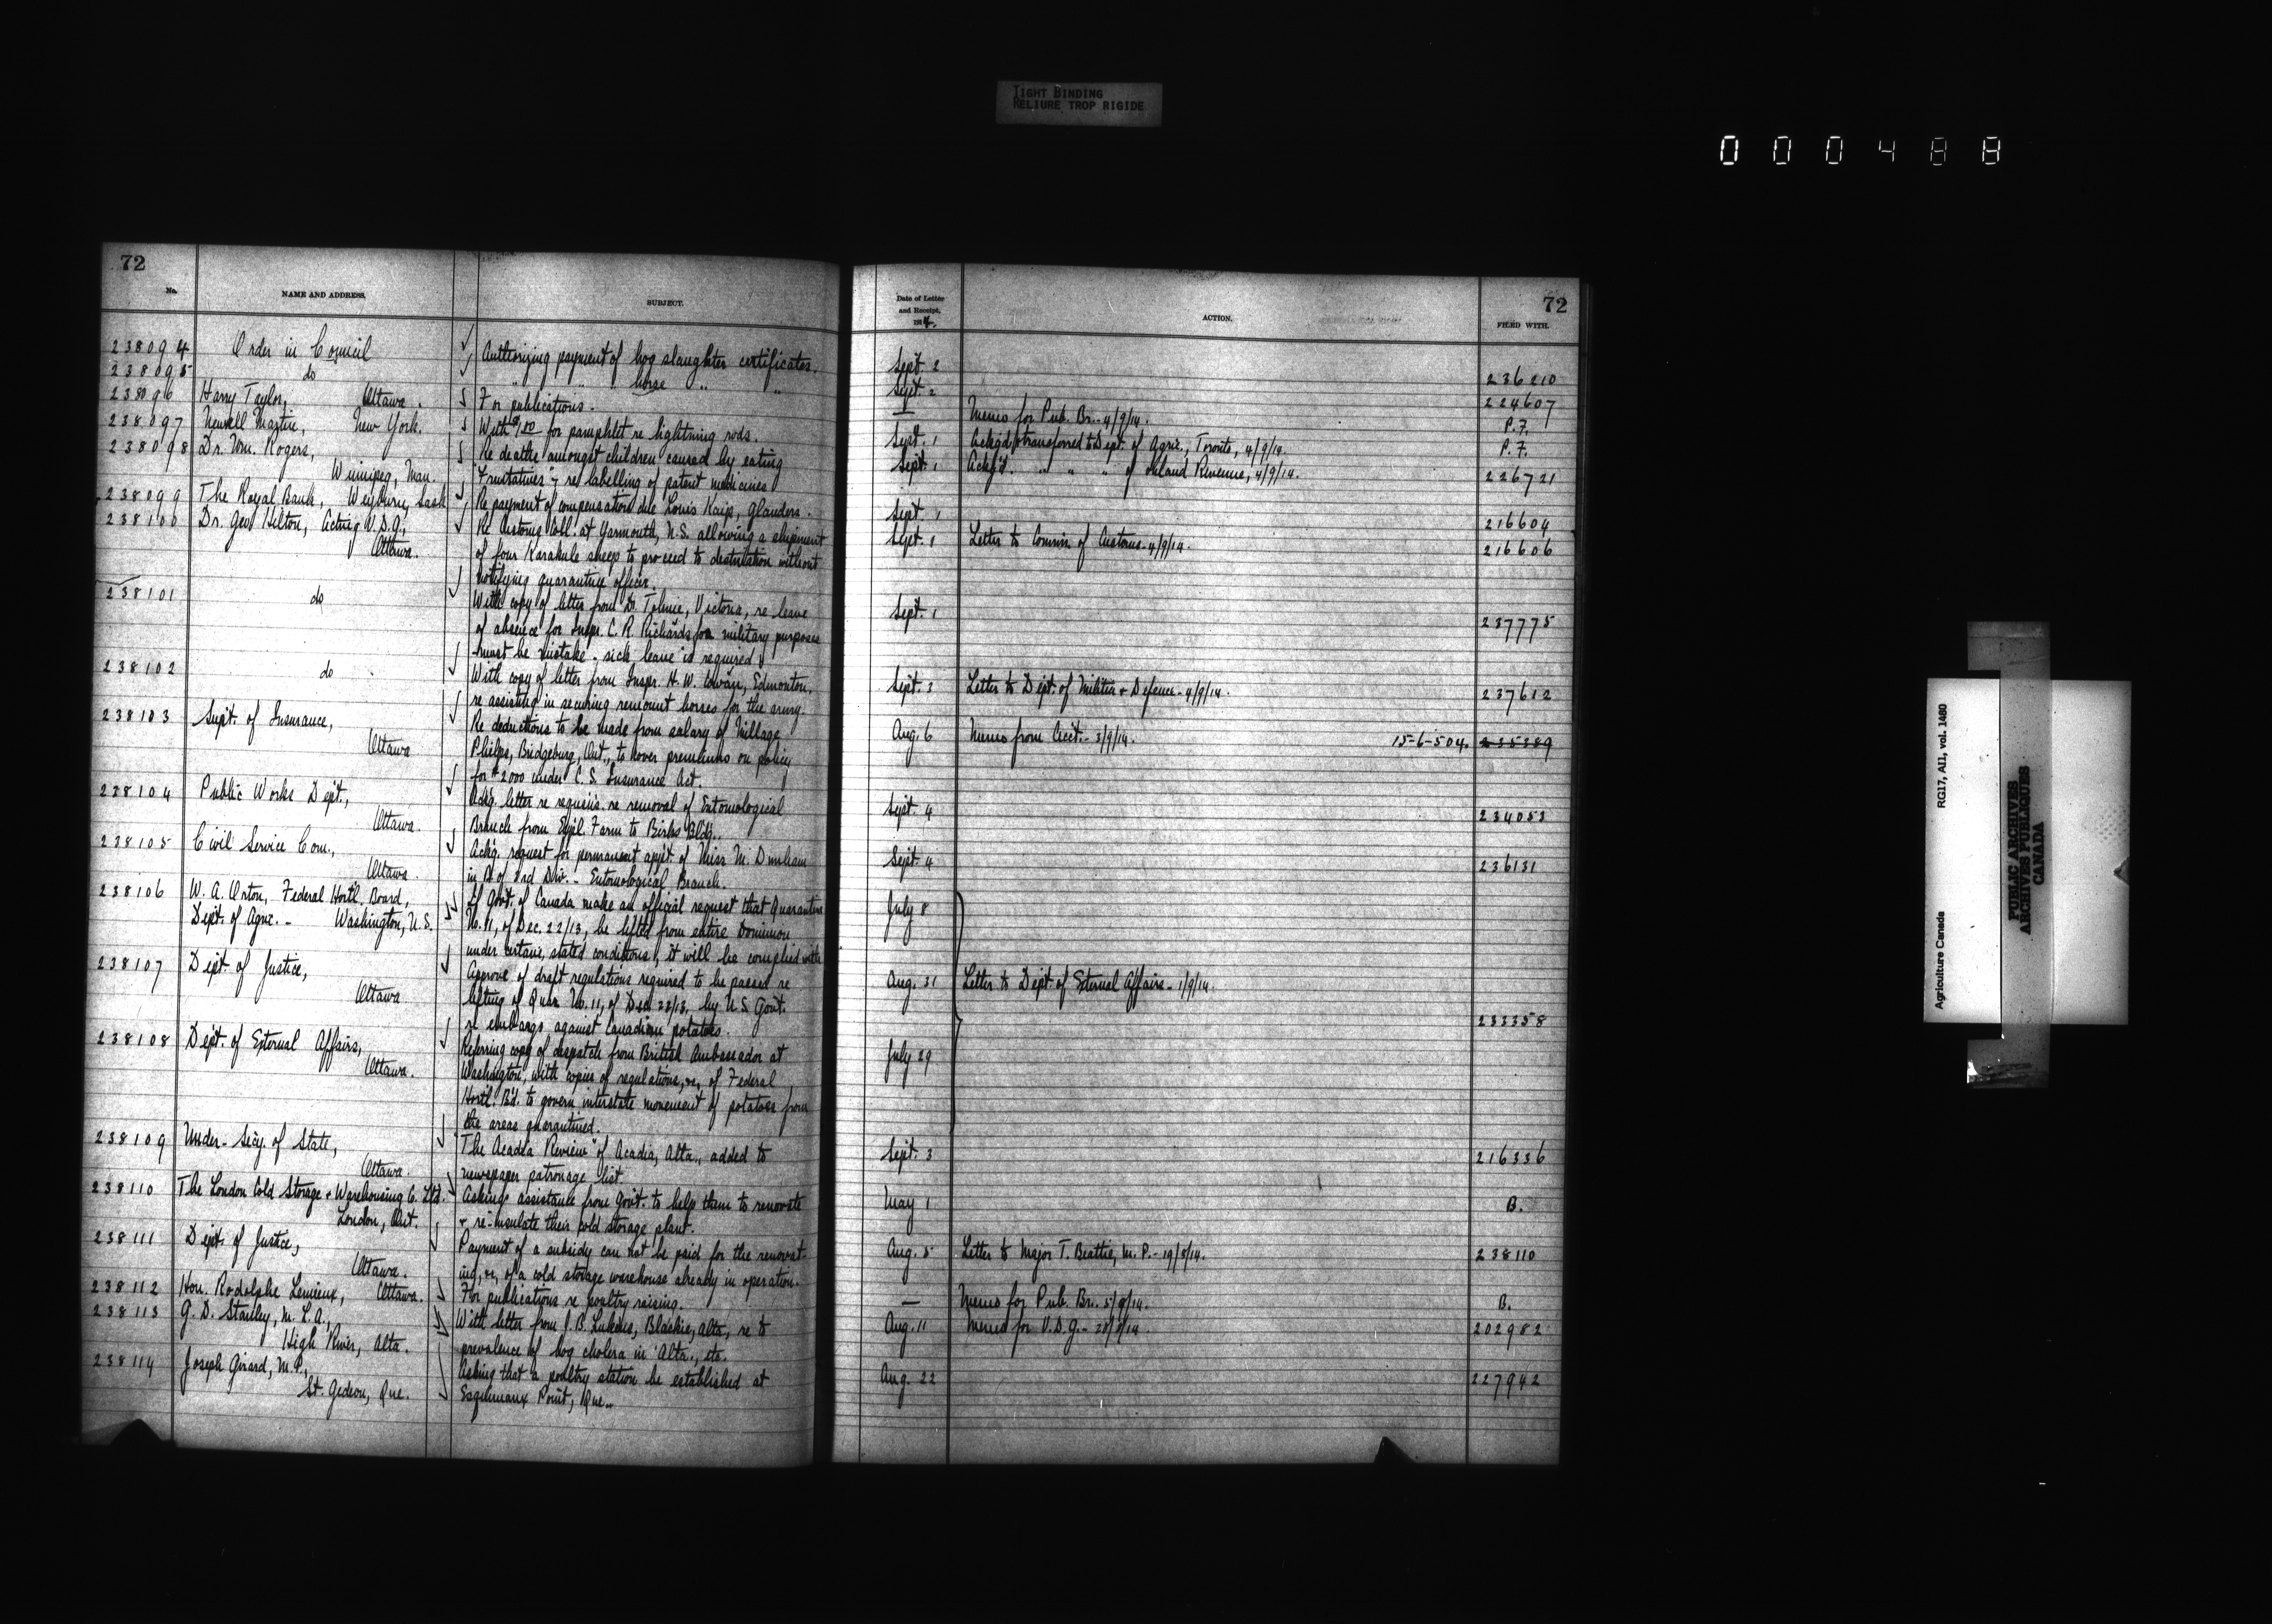 TIGHT BINDING
RELIURE TROP RIGIDE
000488
72
No.
NAME AND ADDRESS.
SUBJECT.
238094 Order in Council Authorizing payment of hog slaughter certificates.
238095 do " " " horse " "
238096 Harry Taylor, Ottawa. For publications.
238097 Newell Martin, New York. With for pamphlet re lightning rods.
238098 Dr. Wm. Rogers, Re deaths amongst children caused by eating
Winnipeg, Man. "Fruitatives" & re labelling of patent medicines
238099 The Royal Bank, Weyburn, Sask Re payment of compensation due Louis Kaip, glanders.
238100 Dr. Geo. Hilton, Acting V.D.G., Re Customs Coll. at Yarmouth, N.S. allowing a shipment
Ottawa. of four Karakule sheep to proceed to destination without
notifying quarantine officer.
238101 do With copy of letter from Dr. Tolmie, Victoria, re leave
of absence for Inspr. C. R. Richards for military purposes
must be mistake. sick leave is required.
238102 do With copy of letter from Inspr. H. W. Cowan, Edmonton,
re assisting in securing remount horses for the army.
238103 Supt. of Insurance, Re deductions to be made from salary of Millage
Ottawa Phelps, Bridgeburg, Ont., to cover premiums on policy
for $2000 under C. S. Insurance Act.
238104 Public Works Dept., Ackg. letter re requis. re removal of Entomological
Ottawa. Branch from Expl. Farm to Birks Bldg.
238105 Civil Service Com., Ackg. request for permanent appt. of Miss M. Dunham
Ottawa in B of 3rd Div. - Entomological Branch.
238106 W. A. Orton, Federal Hortl. Board, If Govt. of Canada make an official request that Quarantine
Dept. of Agric. - Washington, U.S. No. 11, of Dec. 22/13, be lifted from entire Dominion
under certain stated conditions, it will be complied with
238107 Dept. of Justice, Approve of draft regulations required to be passed re
Ottawa lifting of Quar. No. 11, of Dec 22/13, by U.S. Govt.
re embargo against Canadian potatoes.
238108 Dept. of External Affairs, Referring copy of despatch from British Ambassador at
Ottawa. Washington, with copies of regulations, &c, of Federal
Hortl. B'd. to govern interstate movement of potatoes from
the areas quarantined.
238109 Under-Secy. of State, "The Acadia Review" of Acadia, Alta., added to
Ottawa. newspaper patronage list
238110 The London Cold Storage & Warehousing Co. Ltd. Asking assistance from Govt. to help them to renovate
London, Ont. & re-insulate their cold storage plant.
238111 Dept. of Justice, Payment of a subsidy can not be paid for the renovat-
Ottawa. ing, &c, of a cold storage warehouse already in operation.
238112 Hon. Rodolphe Lemieux, Ottawa. For publications re poultry raising.
238113 G. D. Stanley, M. L. A., With letter from J. B. Lukens, Blackie, Alta, re to
High River, Alta. prevalence of hog cholera in Alta., etc.
238114 Joseph Girard, M.P., Asking that a poultry station be established at
St. Gedeon, Que. Esquimaux Point, Que.
72
Date of Letter
and Receipt,
1914.
ACTION.
FILED WITH.
Sept. 2 236210
Sept. 2 224607
— Memo for Pub. Br. - 4/9/14. P.F.
Sept. 1 Ackg'd & transferred to Dept. of Agric., Toronto, 4/9/14. P.F.
Sept. 1 Ackg'd. " " " of Inland Revenue, 4/9/14. 226721
Sept. 1 216604
Sept. 1 Letter to Commr. of Customs - 4/9/14. 216606
Sept. 1 237775
Sept. 3 Letter to Dept. of Militia & Defence - 4/9/14. 237612
Aug. 6 Memo from Acct. - 3/9/14. 15-6-504. 235389
Sept. 4 234053
Sept. 4 236131
July 8
Aug. 31 Letter to Dept. of External Affairs - 1/9/14.
233358
July 29
Sept. 3 216336
May 1 B.
Aug. 5 Letter to Major T. Beattie, M. P. - 19/8/14. 238110
— Memo for Pub. Br. 5/9/14. B.
Aug. 11 Memo for V.D.G. - 28/8/14 202982
Aug. 22 227942
Agriculture Canada RG17, AI1, vol. 1480
PUBLIC ARCHIVES
ARCHIVES PUBLIQUES
CANADA